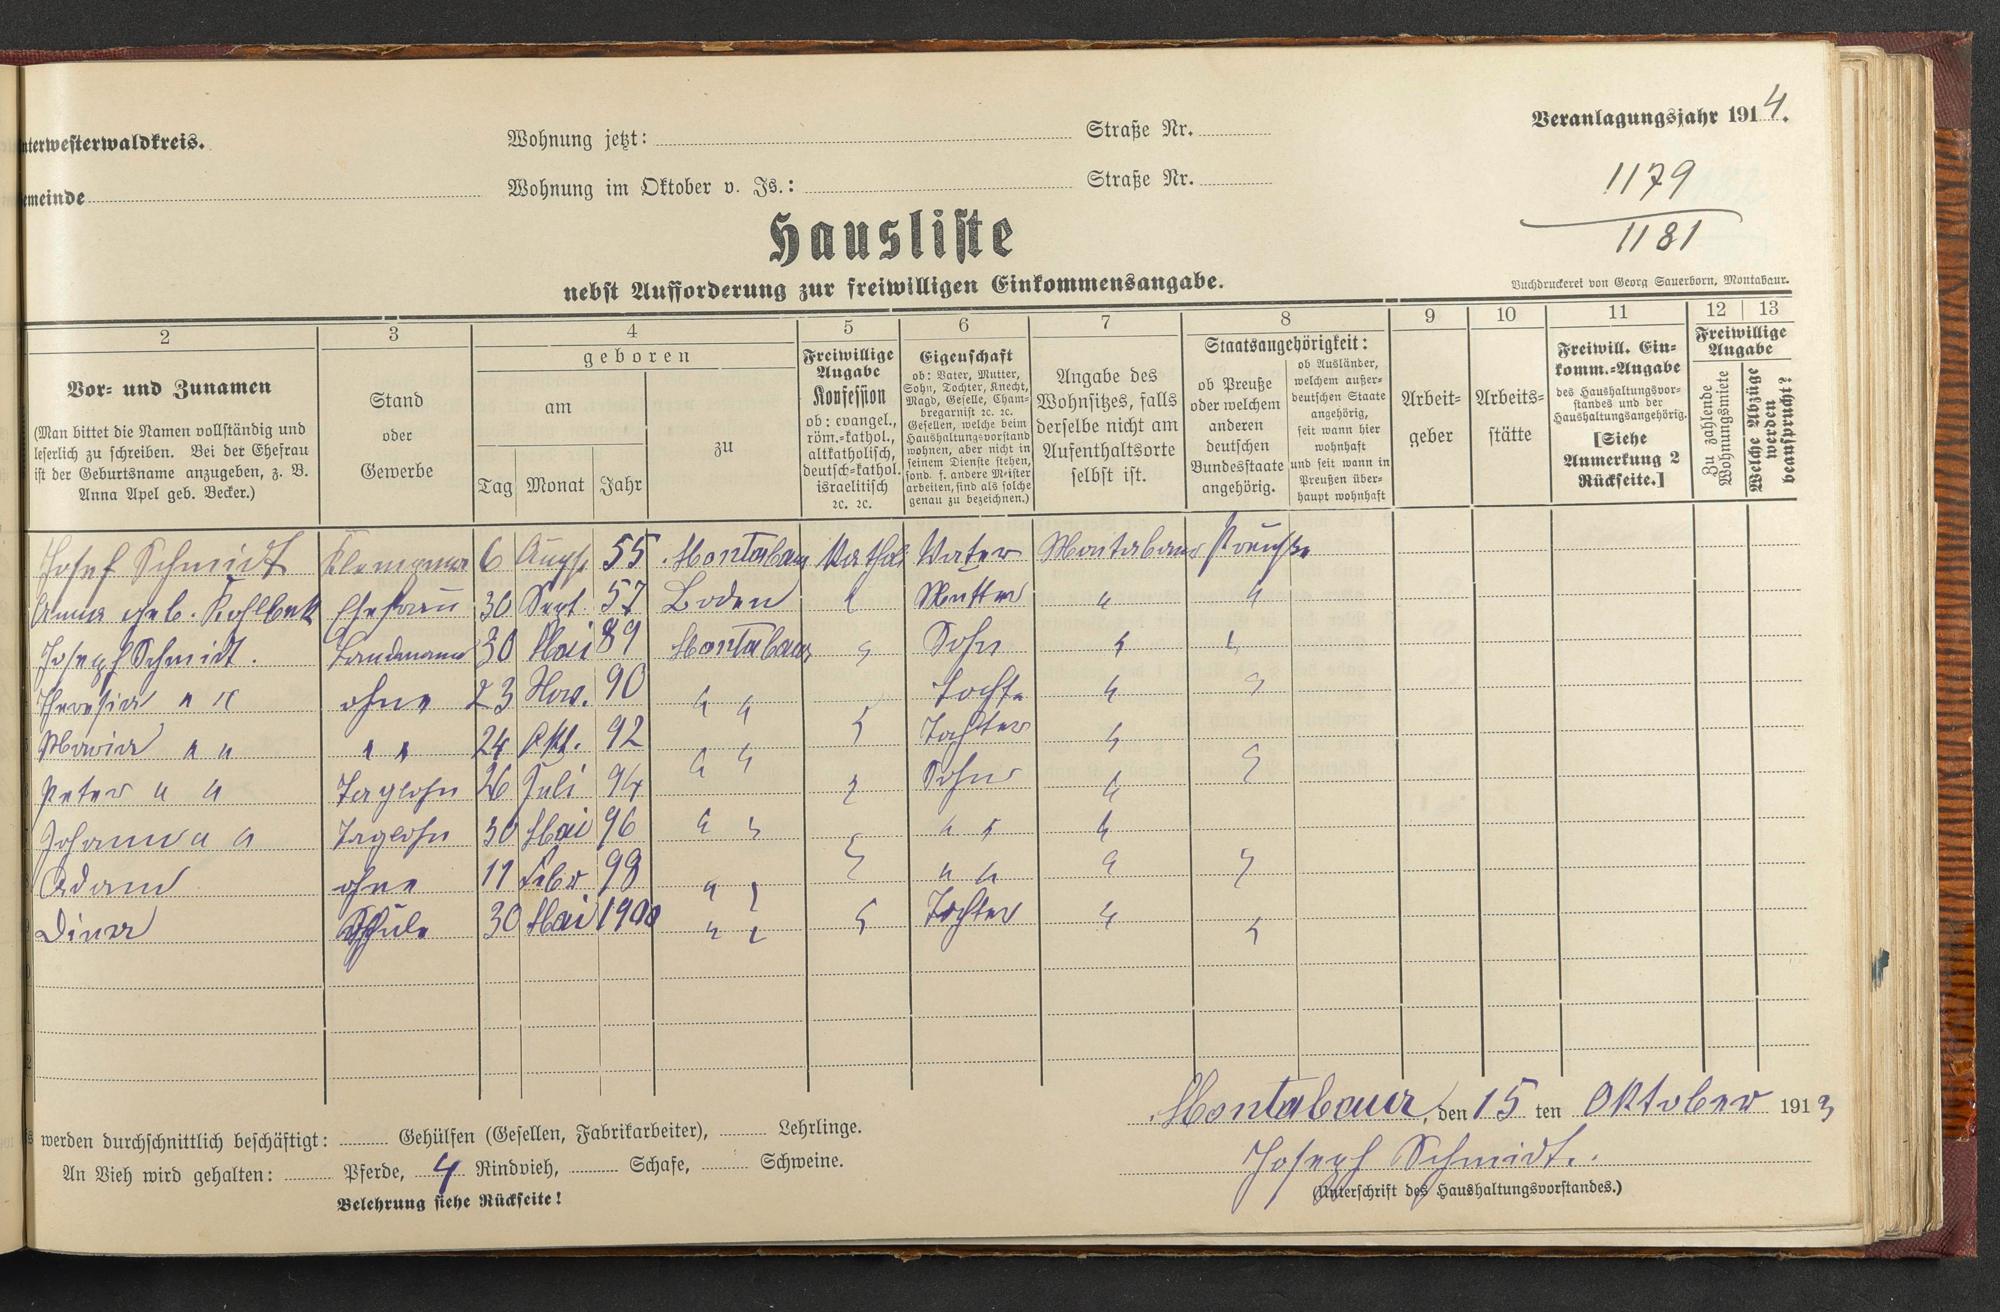 nterwesterwaldkreis.
Wohnung jetzt: Straße Nr.
Veranlagungsjahr 1914.
emeinde
Wohnung im Oktober v. Js.: Straße Nr.
1179
1181
Hausliste
nebst Aufforderung zur freiwilligen Einkommensangabe.
Buchdruckerei von Georg Sauerborn, Montabaur.
2 3 4 5 6 7 8 9 10 11 12 13
Vor- und Zunamen
(Man bittet die Namen vollständig und
leserlich zu schreiben. Bei der Ehefrau
ist der Geburtsname anzugeben, z. B.
Anna Apel geb. Becker.)
Stand
oder
Gewerbe
geboren
am
zu
Tag Monat Jahr
Freiwillige
Angabe
Konfession
ob: evangel.,
röm.-kathol.,
altkatholisch,
deutsch-kathol.
israelitisch
ꝛc. ꝛc.
Eigenschaft
ob: Vater, Mutter,
Sohn, Tochter, Knecht,
Magd, Geselle, Cham-
bregarnist ꝛc. ꝛc.
Gesellen, welche beim
Haushaltungsvorstand
wohnen, aber nicht in
seinem Dienste stehen,
sond. f. andere Meister
arbeiten, sind als solche
genau zu bezeichnen.)
Angabe des
Wohnsitzes, falls
derselbe nicht am
Aufenthaltsorte
selbst ist.
Staatsangehörigkeit:
ob Preuße
oder welchem
anderen
deutschen
Bundesstaate
angehörig.
ob Ausländer,
welchem außer-
deutschen Staate
angehörig,
seit wann hier
wohnhaft
und seit wann in
Preußen über-
haupt wohnhaft
Arbeit-
geber
Arbeits-
stätte
Freiwill. Ein-
komm.-Angabe
des Haushaltungsvor-
standes und der
Haushaltungsangehörig.
[Siehe
Anmerkung 2
Rückseite.]
Freiwillige
Angabe
Zu zahlende
Wohnungsmiete
Welche Abzüge
werden
beansprucht?
Josef Schmidt 6 Aug. 55 Montabaur Kathol Vater Montabaur Preuße
Anna geb. Ehefrau 30 Sept. 57 Boden " Mutter " "
Joseph Schmidt. Landmann 30 Mai 89 Montabaur " Sohn " "
Theresia " " ohne 23 Nov. 90 " " Tochte " "
Maria " " " " 24 Okt. 92 " " " Tochter "
Peter " " Taglohn 26 Juli 94 " Sohn " "
Johann " " Taglohn 30 Mai 96 " " " " "
Adam ohne 11 Febr. 98 " " " " " " "
Dina Schule 30 Mai 1900 " " " Tochter " "
Montabaur, den 15 ten Oktober 1913
Joseph Schmidt.
(Unterschrift des Haushaltungsvorstandes.)
werden durchschnittlich beschäftigt: Gehülfen (Gesellen, Fabrikarbeiter), Lehrlinge.
An Vieh wird gehalten: Pferde, 4 Rindvieh, Schafe, Schweine.
Belehrung siehe Rückseite!